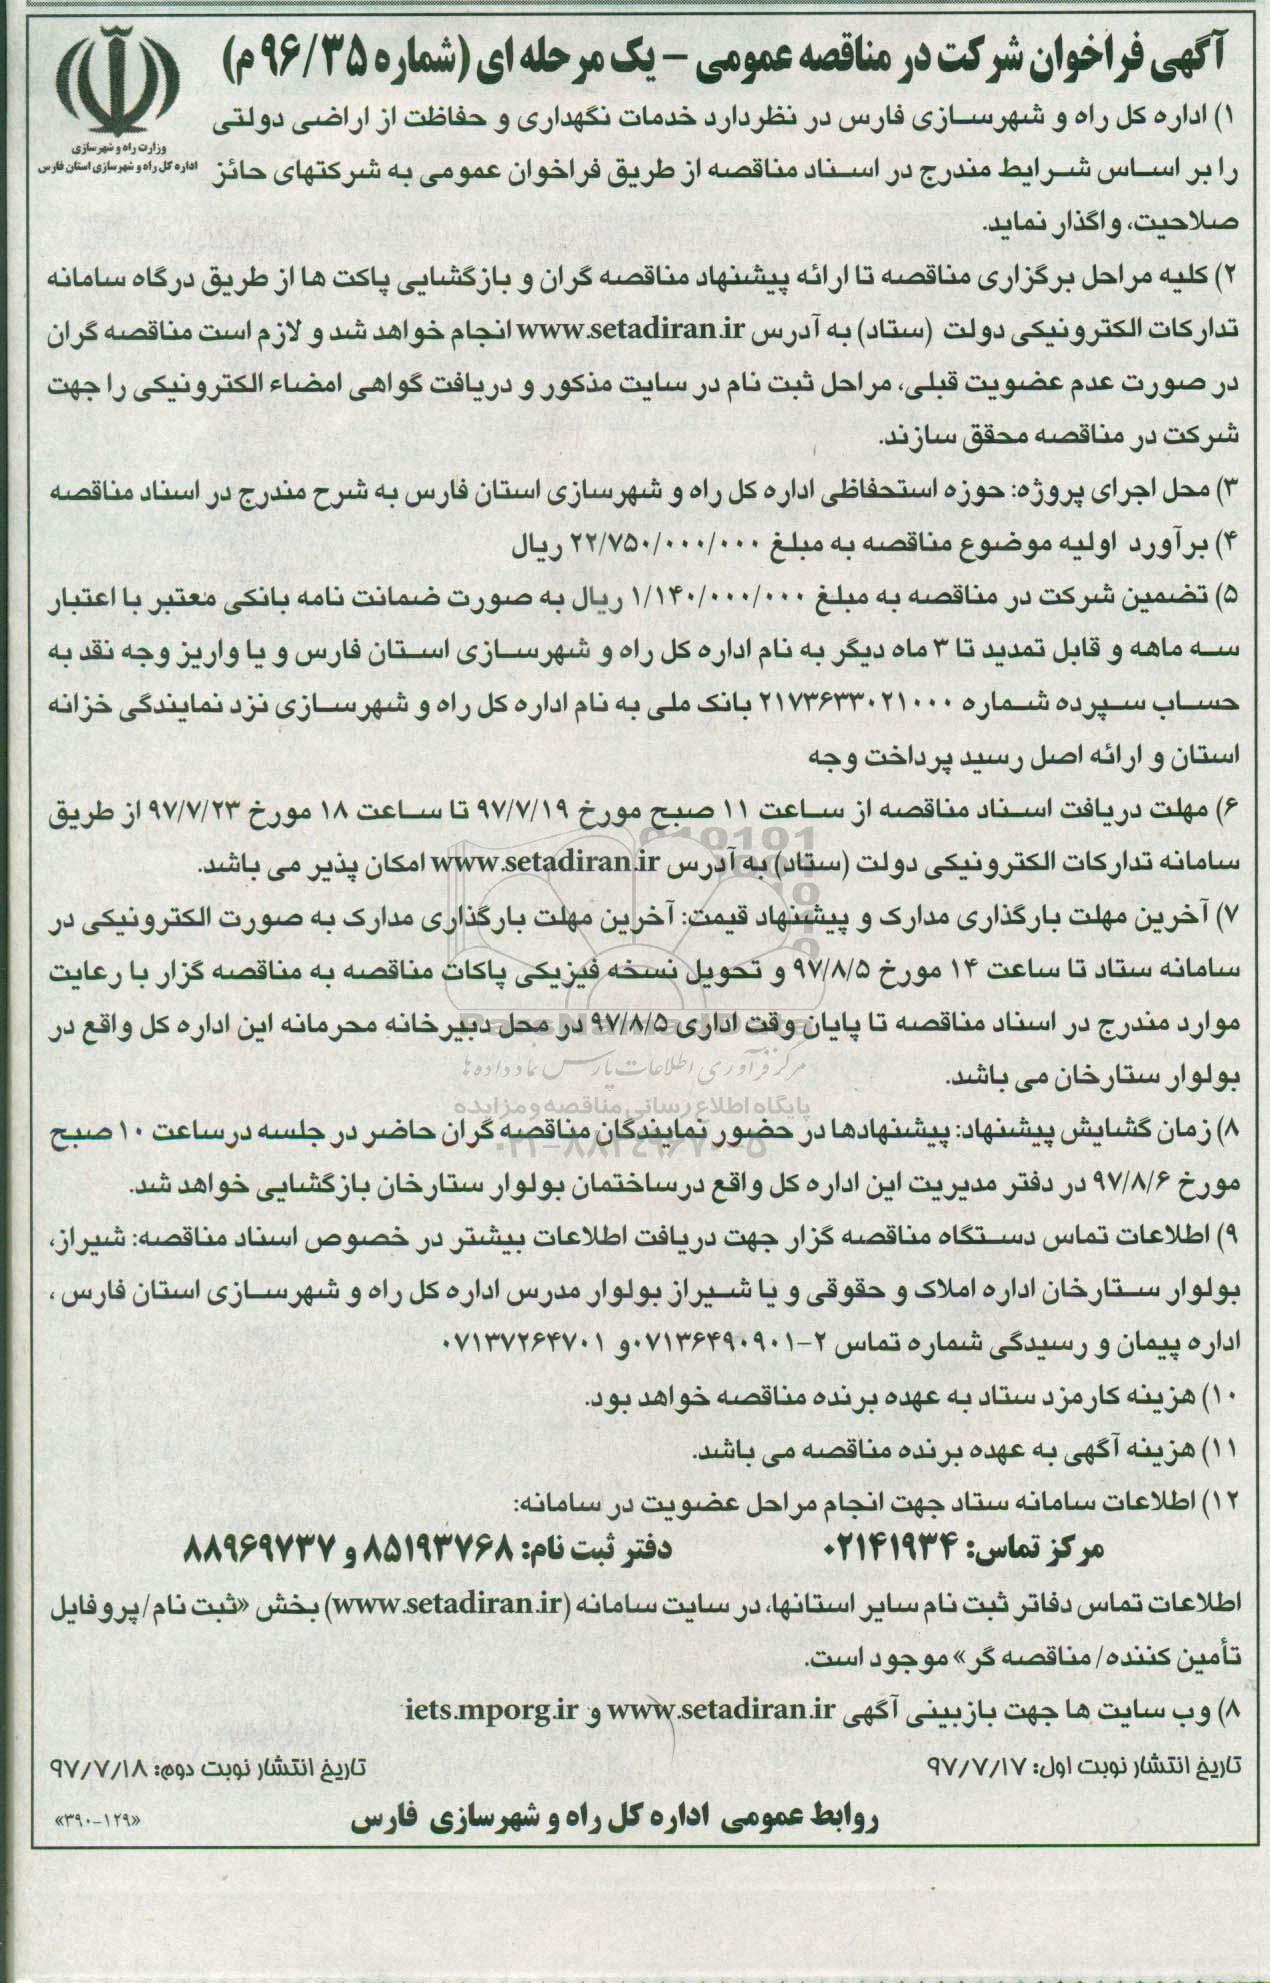 آگهی فراخوان شرکت در مناقصه عمومی - یک مرحله ای (شماره ۹۶/۳۵ م)
وزارت راه و شهرسازی
اداره کل راه و شهرسازی استان فارس
۱) اداره کل راه و شهرسازی فارس در نظردارد خدمات نگهداری و حفاظت از اراضی دولتی
را بر اساس شرایط مندرج در اسناد مناقصه از طریق فراخوان عمومی به شرکتهای حائز
صلاحیت، واگذار نماید.
۲) کلیه مراحل برگزاری مناقصه تا ارائه پیشنهاد مناقصه گران و بازگشایی پاکت ها از طریق درگاه سامانه
تدارکات الکترونیکی دولت (ستاد) به آدرس www.setadiran.ir انجام خواهد شد و لازم است مناقصه گران
در صورت عدم عضویت قبلی، مراحل ثبت نام در سایت مذکور و دریافت گواهی امضاء الکترونیکی را جهت
شرکت در مناقصه محقق سازند.
۳) محل اجرای پروژه: حوزه استحفاظی اداره کل راه و شهرسازی استان فارس به شرح مندرج در اسناد مناقصه
۴) برآورد اولیه موضوع مناقصه به مبلغ ۲۲/۷۵۰/۰۰۰/۰۰۰ ریال
۵) تضمین شرکت در مناقصه به مبلغ ۱/۱۴۰/۰۰۰/۰۰۰ ریال به صورت ضمانت نامه بانکی معتبر با اعتبار
سه ماهه و قابل تمدید تا ۳ ماه دیگر به نام اداره کل راه و شهرسازی استان فارس و یا واریز وجه نقد به
حساب سپرده شماره ۲۱۷۳۶۳۳۰۲۱۰۰۰ بانک ملی به نام اداره کل راه و شهرسازی نزد نمایندگی خزانه
استان و ارائه اصل رسید پرداخت وجه
۶) مهلت دریافت اسناد مناقصه از ساعت ۱۱ صبح مورخ ۹۷/۷/۱۹ تا ساعت ۱۸ مورخ ۹۷/۷/۲۳ از طریق
سامانه تدارکات الکترونیکی دولت (ستاد) به آدرس www.setadiran.ir امکان پذیر می باشد.
۷) آخرین مهلت بارگذاری مدارک و پیشنهاد قیمت: آخرین مهلت بارگذاری مدارک به صورت الکترونیکی در
سامانه ستاد تا ساعت ۱۴ مورخ ۹۷/۸/۵ و تحویل نسخه فیزیکی پاکات مناقصه به مناقصه گزار با رعایت
موارد مندرج در اسناد مناقصه تا پایان وقت اداری ۹۷/۸/۵ در محل دبیرخانه محرمانه این اداره کل واقع در
بولوار ستارخان می باشد.
مرکز فرآوری اطلاعات پارس نماد داده ها
پایگاه اطلاع رسانی مناقصه و مزایده
۸) زمان گشایش پیشنهاد: پیشنهادها در حضور نمایندگان مناقصه گران حاضر در جلسه درساعت ۱۰ صبح
مورخ ۹۷/۸/۶ در دفتر مدیریت این اداره کل واقع درساختمان بولوار ستارخان بازگشایی خواهد شد.
۹) اطلاعات تماس دستگاه مناقصه گزار جهت دریافت اطلاعات بیشتر در خصوص اسناد مناقصه: شیراز،
بولوار ستارخان اداره املاک و حقوقی و یا شیراز بولوار مدرس اداره کل راه و شهرسازی استان فارس ،
اداره پیمان و رسیدگی شماره تماس ۲-۰۷۱۳۶۴۹۰۹۰۱و ۰۷۱۳۷۲۶۴۷۰۱
۱۰) هزینه کارمزد ستاد به عهده برنده مناقصه خواهد بود.
۱۱) هزینه آگهی به عهده برنده مناقصه می باشد.
۱۲) اطلاعات سامانه ستاد جهت انجام مراحل عضویت در سامانه:
مرکز تماس: ۰۲۱۴۱۹۳۴ دفتر ثبت نام: ۸۵۱۹۳۷۶۸ و ۸۸۹۶۹۷۳۷
اطلاعات تماس دفاتر ثبت نام سایر استانها، در سایت سامانه (www.setadiran.ir) بخش «ثبت نام/پروفایل
تأمین کننده/مناقصه گر» موجود است.
۸) وب سایت ها جهت بازبینی آگهی www.setadiran.ir و iets.mporg.ir
تاریخ انتشار نوبت اول: ۹۷/۷/۱۷ تاریخ انتشار نوبت دوم: ۹۷/۷/۱۸
روابط عمومی اداره کل راه و شهرسازی فارس
«۳۹۰-۱۲۹»